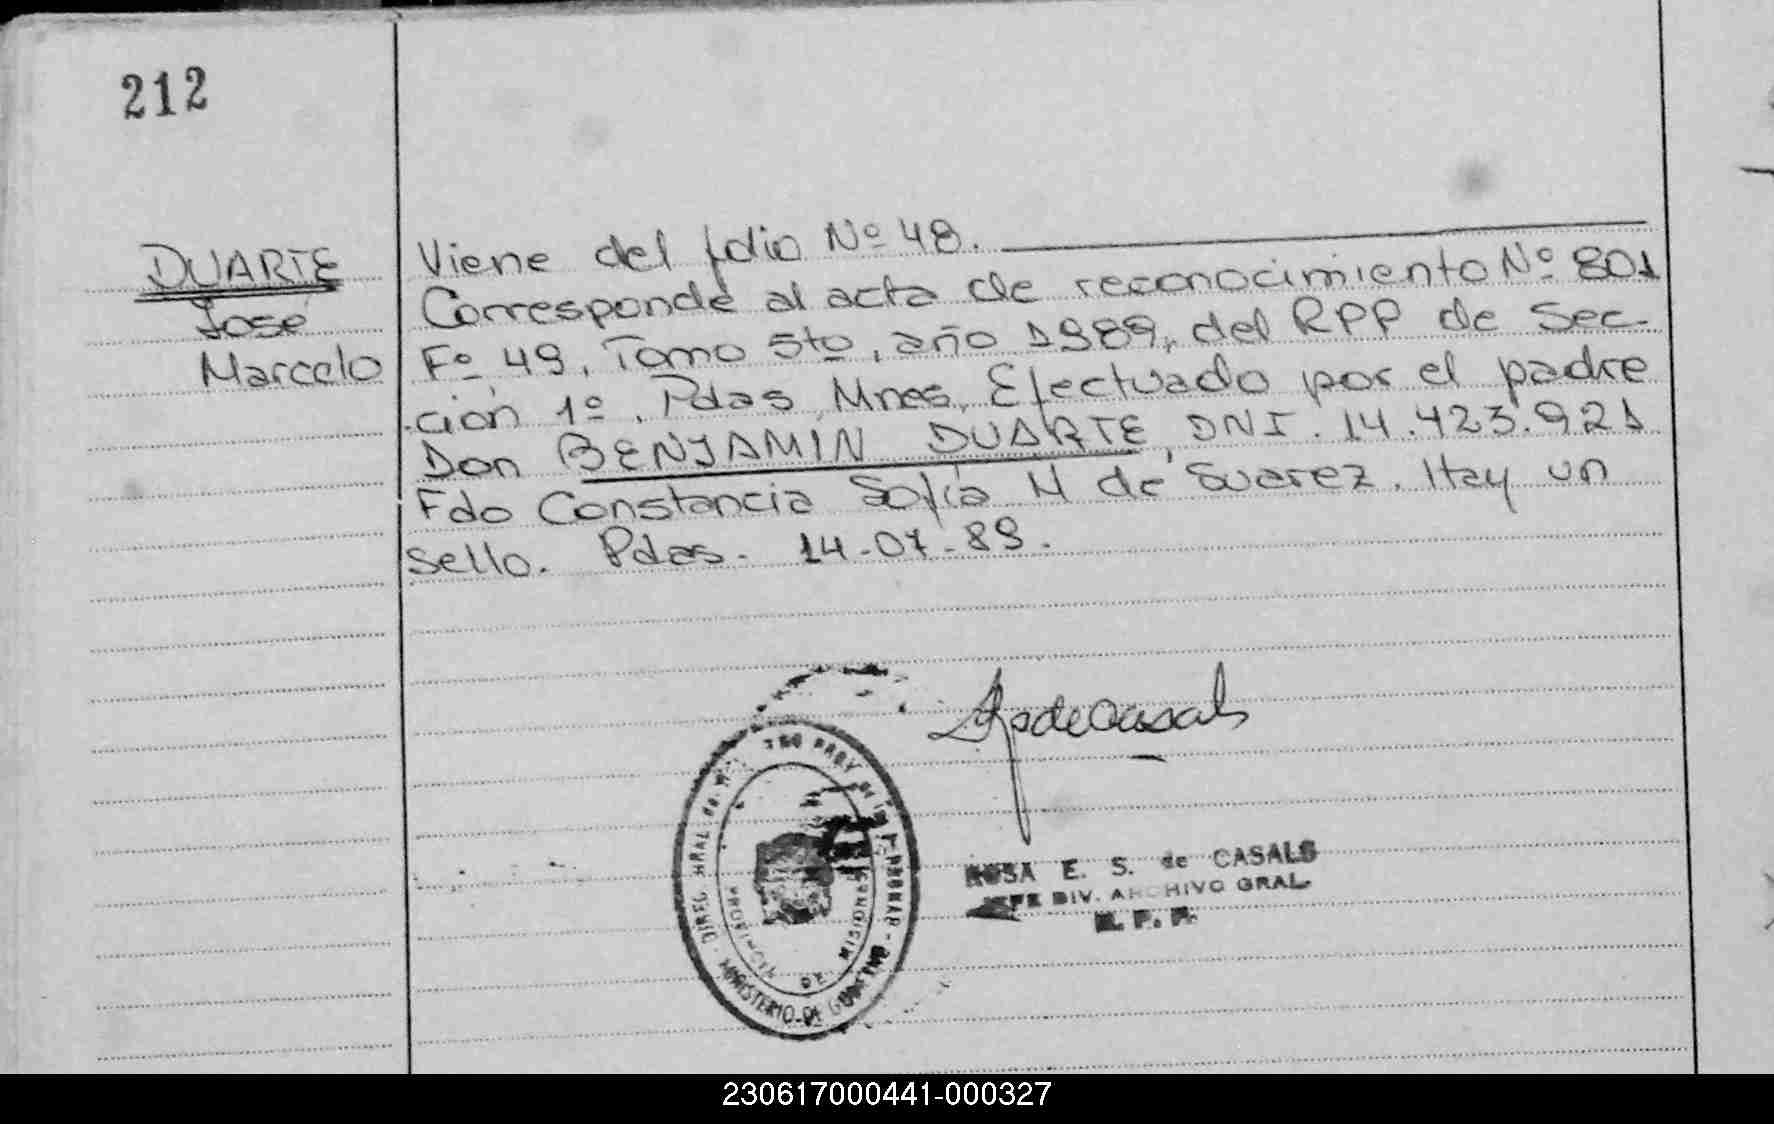 212
DUARTE
José
Marcelo
Viene del folio Nº 48.
Corresponde al acta de reconocimiento Nº 801
Fº 49, Tomo 5to, año 1989, del RPP de Sec-
ción 1º, Pdas, Mnes, Efectuado por el padre
Don BENJAMIN DUARTE, DNI. 14.423.921
Fdo Constancia Sofía M de Suarez. Hay un
sello. Pdas. 14-07-89.
ROSA E. S. de CASALS
JEFE DIV. ARCHIVO GRAL.
R. P. P.
DIREC. GRAL de
MINISTERIO DE GOBIERNO
PROVINCIA DE MISIONES
230617000441-000327